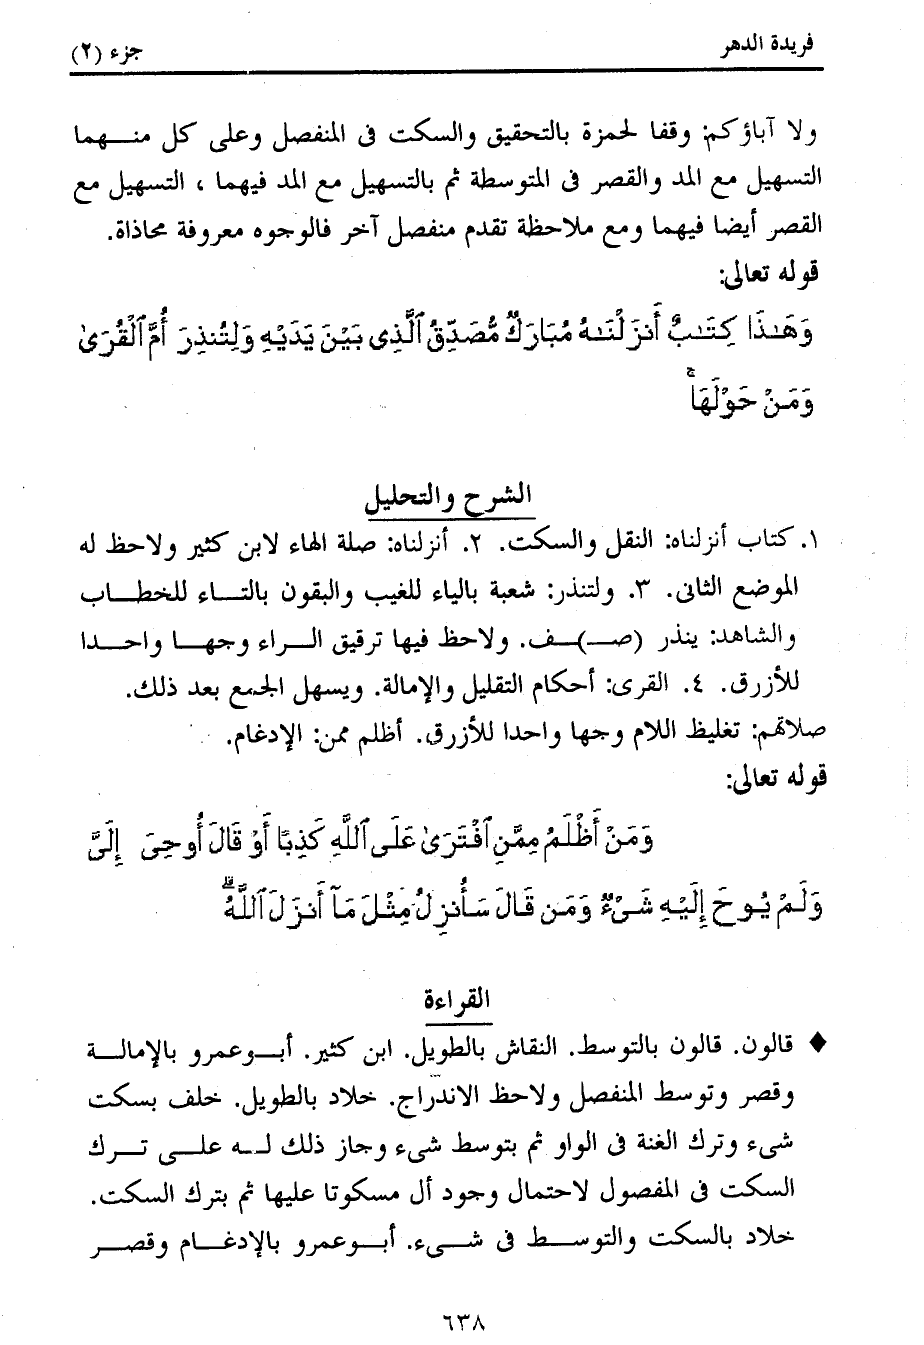 فريدة الدهر
جزء (٢)
ولا آباؤكم: وقفا لحمزة بالتحقيق والسكت فى المنفصل وعلى كل منهما
التسهيل مع المد والقصر فى المتوسطة ثم بالتسهيل مع المد فيهما ، التسهيل مع
القصر أيضا فيهما ومع ملاحظة تقدم منفصل آخر فالوجوه معروفة محاذاة.
قوله تعالى:
وَهَـٰذَا كِتَـٰبٌ أَنزَلْنَـٰهُ مُبَارَكٌ مُّصَدِّقُ ٱلَّذِى بَيْنَ يَدَيْهِ وَلِتُنذِرَ أُمَّ ٱلْقُرَىٰ
وَمَنْ حَوْلَهَا ۚ
الشرح والتحليل
١. كتاب أنزلناه: النقل والسكت. ٢. أنزلناه: صلة الهاء لابن كثير ولاحظ له
الموضع الثانى. ٣. ولتنذر: شعبة بالياء للغيب والبقون بالتاء للخطاب
والشاهد: ينذر (صـ)ـف. ولاحظ فيها ترقيق الراء وجها واحدا
للأزرق. ٤. القرى: أحكام التقليل والإمالة. ويسهل الجمع بعد ذلك.
صلاتهم: تغليظ اللام وجها واحدا للأزرق. أظلم ممن: الإدغام.
قوله تعالى:
وَمَنْ أَظْلَمُ مِمَّنِ ٱفْتَرَىٰ عَلَى ٱللَّهِ كَذِبًا أَوْ قَالَ أُوحِىَ إِلَىَّ
وَلَمْ يُوحَ إِلَيْهِ شَىْءٌ وَمَن قَالَ سَأُنزِلُ مِثْلَ مَآ أَنزَلَ ٱللَّهُ ۗ
القراءة
♦ قالون. قالون بالتوسط. النقاش بالطويل. ابن كثير. أبوعمرو بالإمالة
وقصر وتوسط المنفصل ولاحظ الاندراج. خلاد بالطويل. خلف بسكت
شىء وترك الغنة فى الواو ثم بتوسط شىء وجاز ذلك له على ترك
السكت فى المفصول لاحتمال وجود أل مسكوتا عليها ثم بترك السكت.
خلاد بالسكت والتوسط فى شىء. أبوعمرو بالإدغام وقصر
٦٣٨